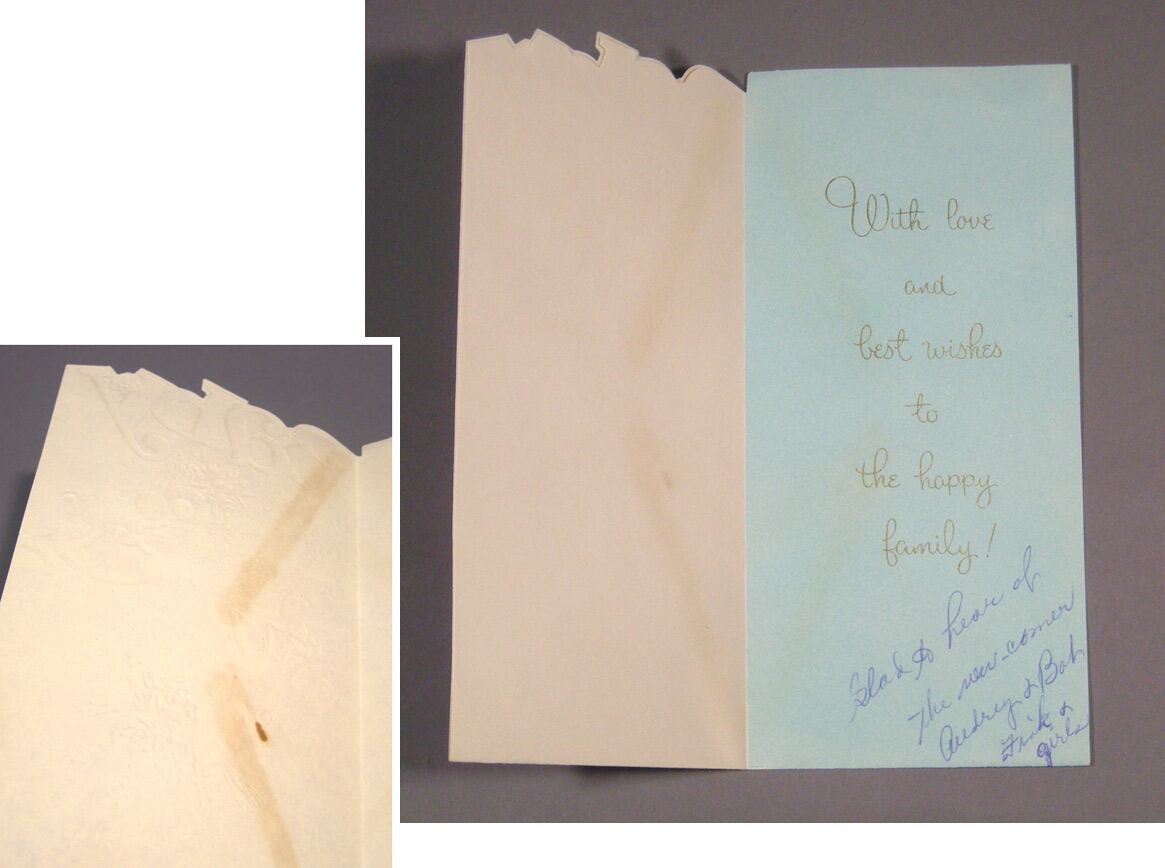 With love
and
best wishes
to
the happy
family!
Glad to hear of
the new-comer
Audrey & Bob
Fink &
girls